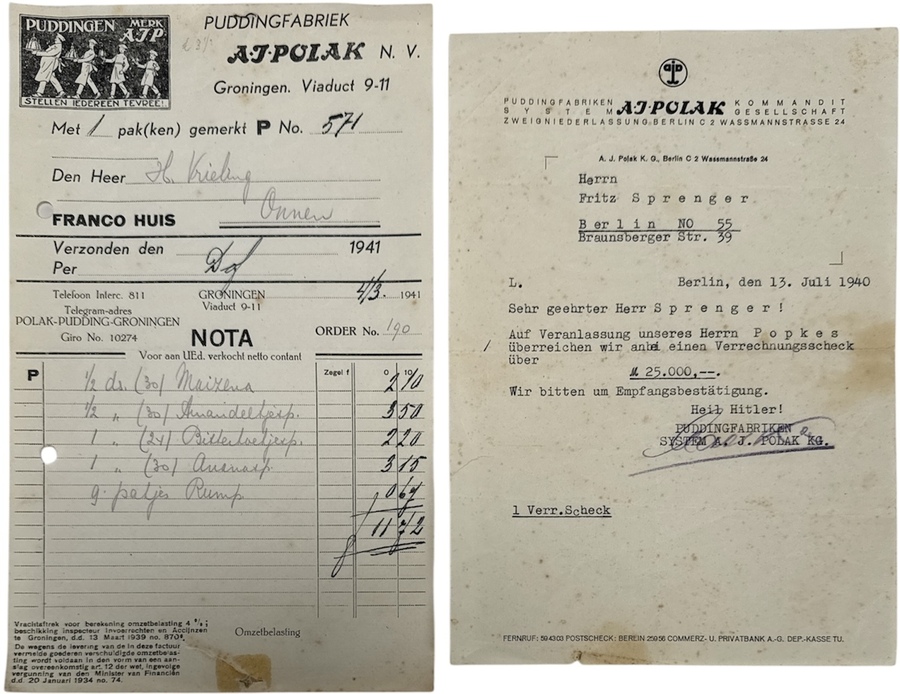 PUDDINGEN MERK
AJP
STELLEN IEDEREEN TEVREE!
PUDDINGFABRIEK
A·J·POLAK N. V.
Groningen. Viaduct 9-11
Met 1 pak(ken) gemerkt P No. 571
Den Heer H. Vrieling
Onnen
FRANCO HUIS
Verzonden den 1941
Per
Telefoon Interc. 811
Telegram-adres
POLAK-PUDDING-GRONINGEN
Giro No. 10274
GRONINGEN
Viaduct 9-11
4/3. 1941
NOTA
ORDER No. 190
Voor aan UEd. verkocht netto contant
P Zegel f
1/2 ds. (30) Maizena 2 10
1/2 „ (30) Amandeltjesp. 3 50
1 „ (24) Bitterkoetjesp. 2 20
1 „ (30) Ananasp. 3 15
g. patjes Rump 0 67
11 72
Vrachtaftrek voor berekening omzetbelasting 4 %;
beschikking inspecteur Invoerrechten en Accijnzen
te Groningen, d.d. 13 Maart 1939 no. 870.
De wegens de levering van de in deze factuur
vermelde goederen verschuldigde omzetbelas-
ting wordt voldaan in den vorm van een aan-
slag overeenkomstig art. 12 der wet, ingevolge
vergunning van den Minister van Financiën
d.d. 20 Januari 1934 no. 74.
Omzetbelasting
ajp
PUDDINGFABRIKEN A·J·POLAK KOMMANDIT
SYSTEM GESELLSCHAFT
ZWEIGNIEDERLASSUNG: BERLIN C 2 WASSMANNSTRASSE 24
A. J. Polak K. G., Berlin C 2 Wassmannstraße 24
Herrn
Fritz S p r e n g e r
B e r l i n NO 55
Braunsberger Str. 39
L. Berlin, den 13. Juli 1940
Sehr geehrter Herr S p r e n g e r !
Auf Veranlassung unseres Herrn P o p k e s
/ überreichen wir anbei einen Verrechnungsscheck
über
ℳ 25.000,--.
Wir bitten um Empfangsbestätigung.
Heil Hitler!
PUDDINGFABRIKEN
SYSTEM A. J. POLAK KG.
1 Verr.Scheck
FERNRUF: 594303 POSTSCHECK: BERLIN 25956 COMMERZ- U. PRIVATBANK A.-G. DEP.-KASSE TU.